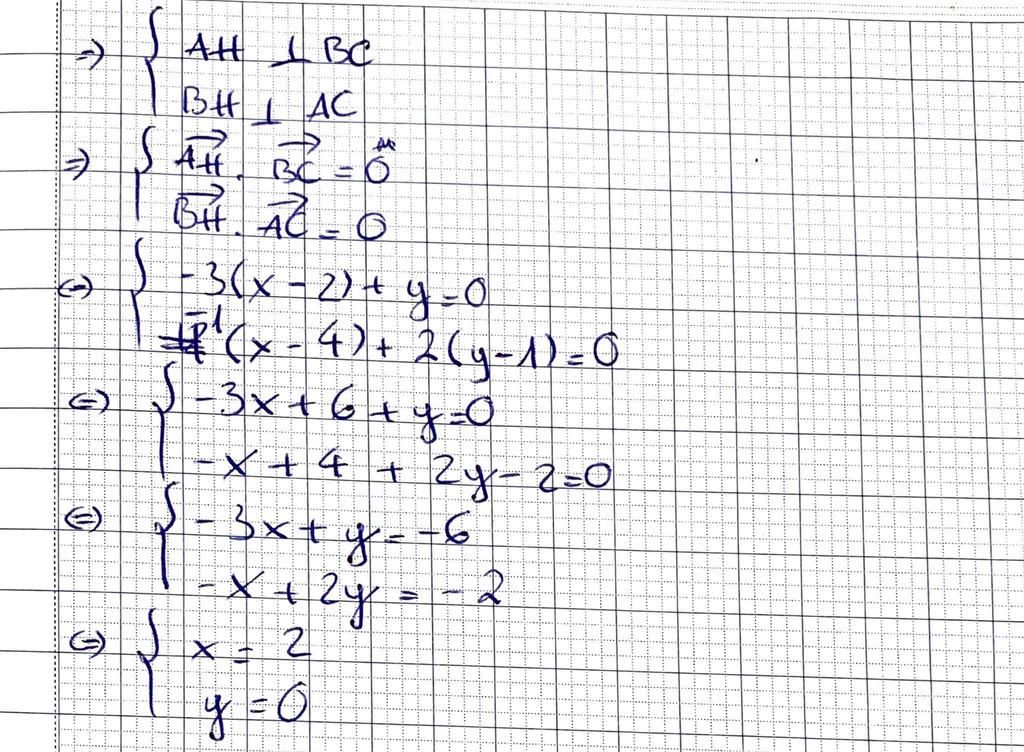 ⇒ { AH ⊥ BC
BH ⊥ AC
⇒ { \overrightarrow{AH} . \overrightarrow{BC} = 0
\overrightarrow{BH} . \overrightarrow{AC} = 0
⇔ { -3(x - 2) + y = 0
-1(x - 4) + 2(y - 1) = 0
⇔ { -3x + 6 + y = 0
-x + 4 + 2y - 2 = 0
⇔ { -3x + y = -6
-x + 2y = -2
⇔ { x = 2
y = 0